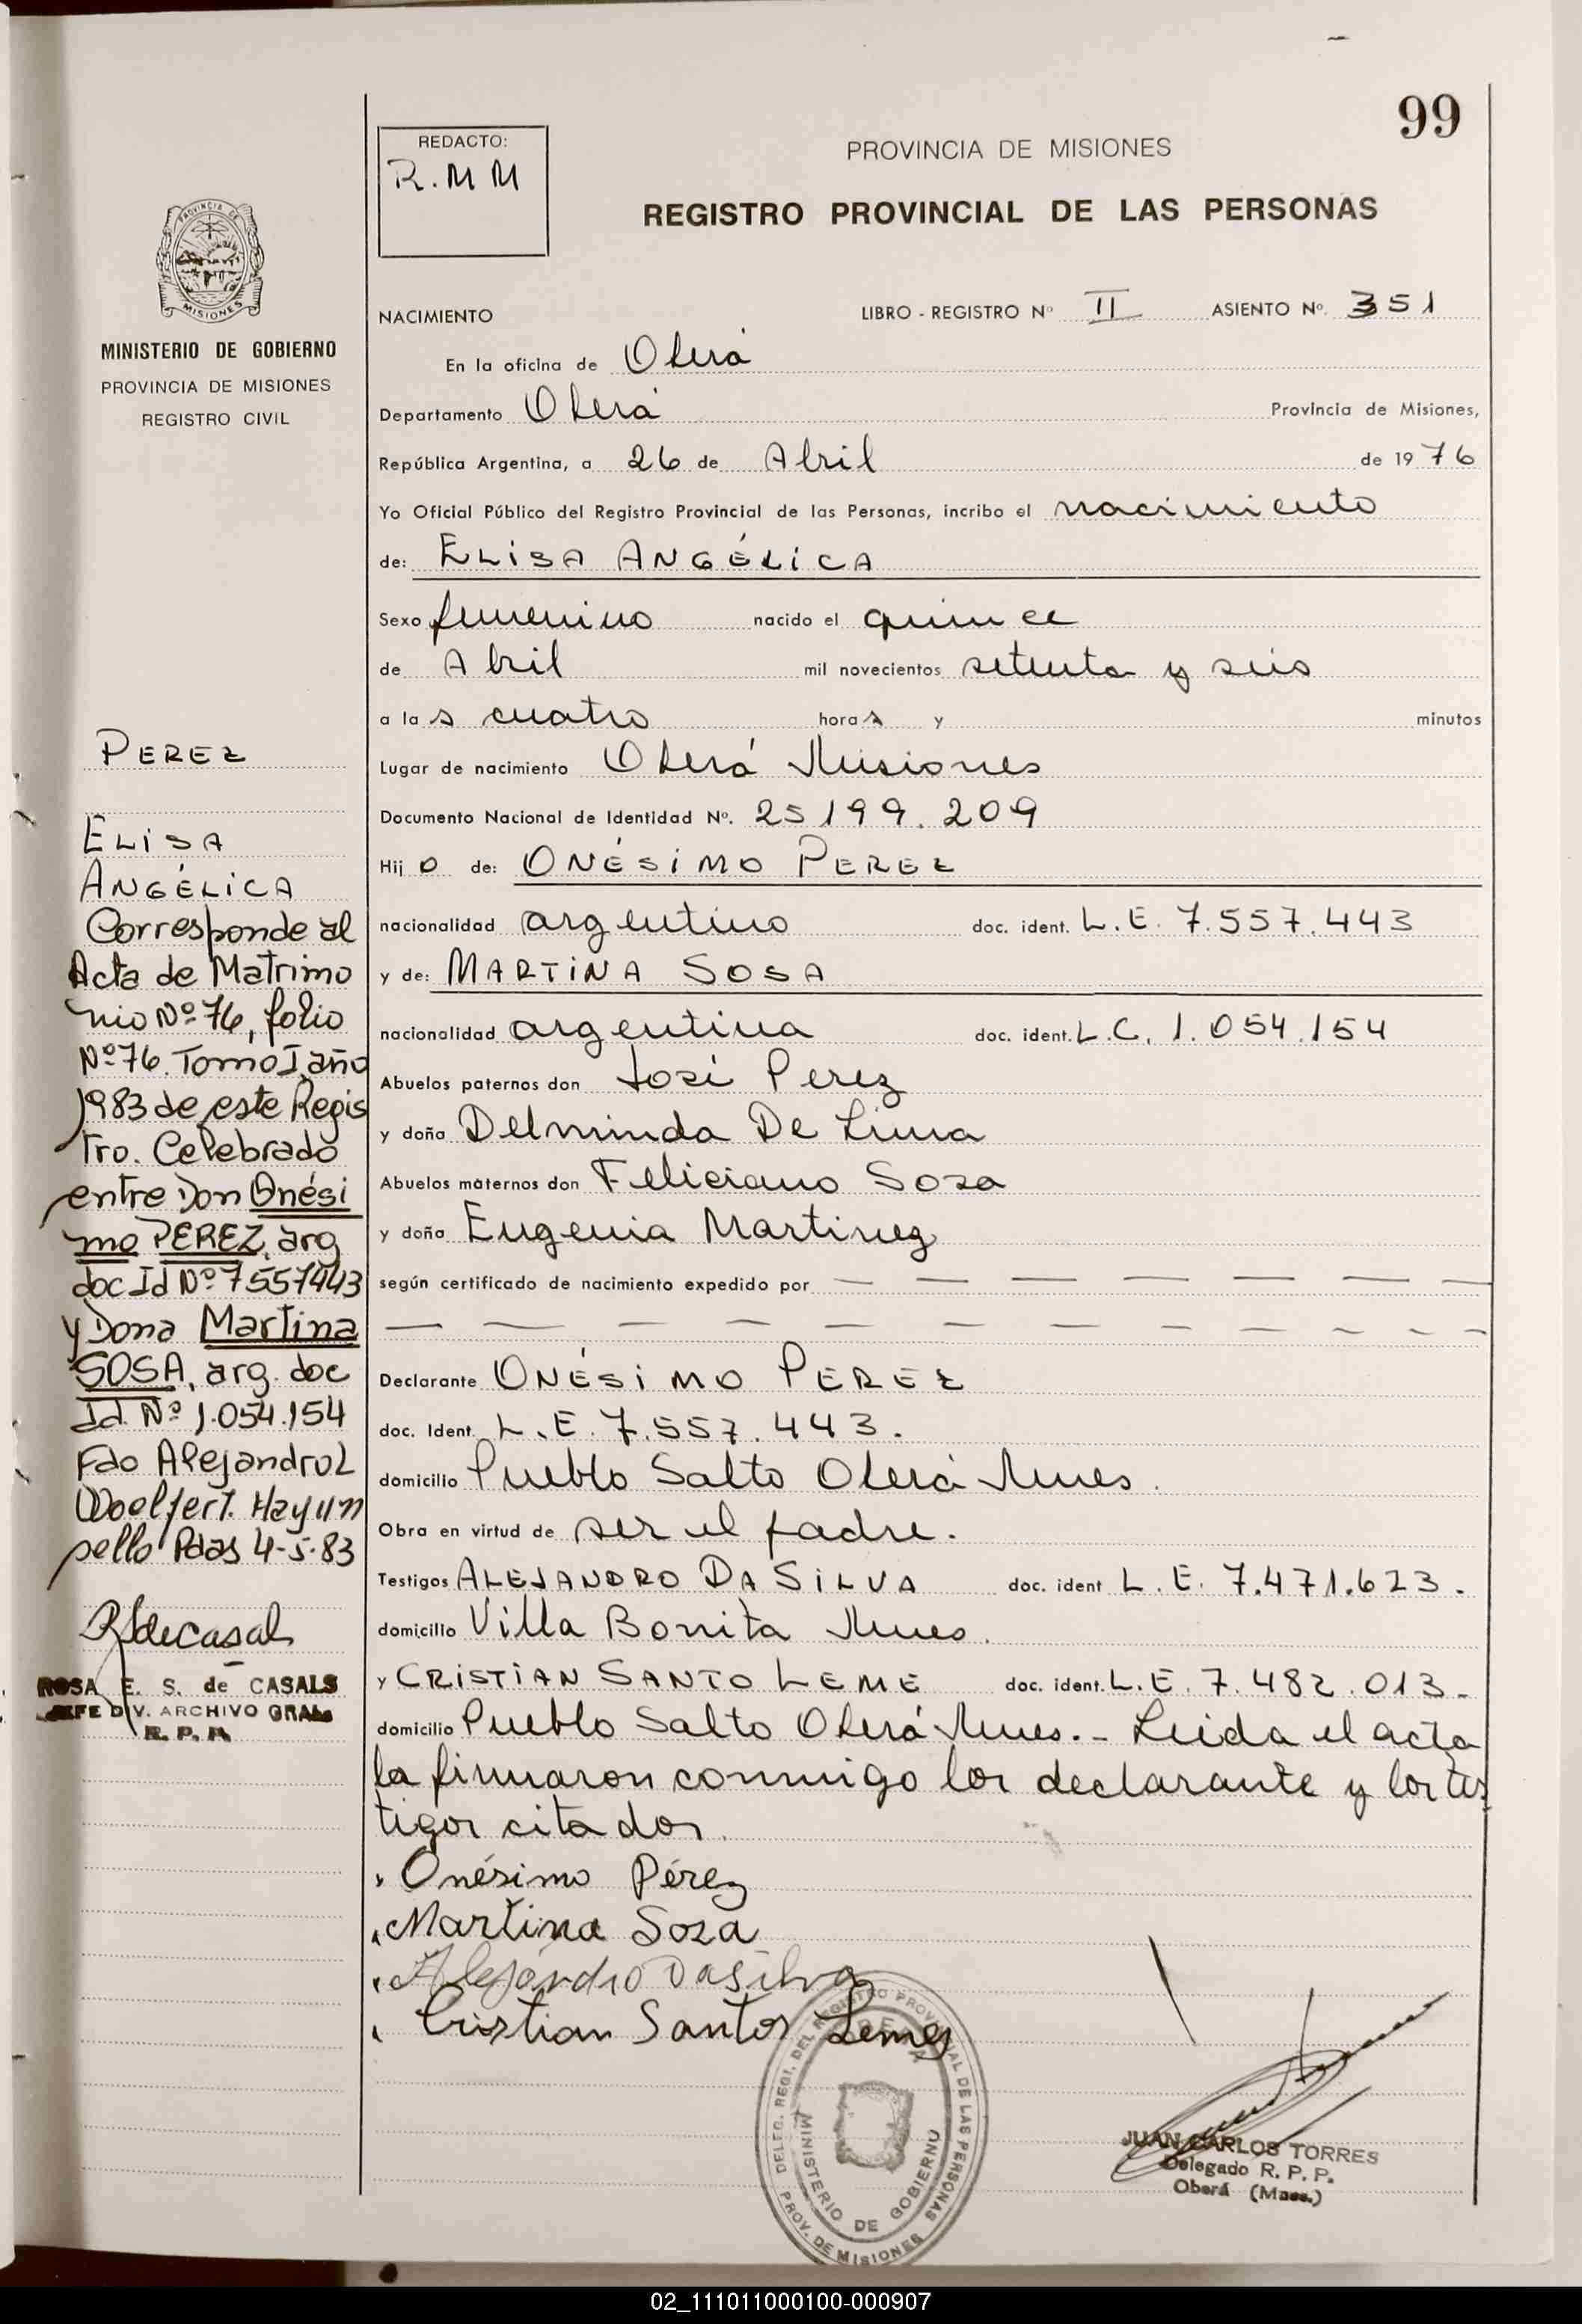 99
REDACTO:
R.M M
PROVINCIA DE MISIONES
REGISTRO PROVINCIAL DE LAS PERSONAS
PROVINCIA DE
MISIONES
MINISTERIO DE GOBIERNO
PROVINCIA DE MISIONES
REGISTRO CIVIL
PEREZ
ELISA
ANGÉLICA
Corresponde al
Acta de Matrimo
nio Nº 76, folio
Nº 76. Tomo I, año
1983 de este Regis
tro. Celebrado
entre Don Onési
mo PEREZ, arg
doc Id Nº 7557443
y Dona Martina
SOSA, arg. doc
Id Nº 1.054.154
Fdo Alejandro L
Woelfert. Hay un
sello Pdas 4-5-83
RSdecasals
ROSA E. S. de CASALS
JEFE DIV. ARCHIVO GRAL.
R. P. P.
NACIMIENTO LIBRO - REGISTRO Nº II ASIENTO Nº. 351
En la oficina de Oberá
Departamento Oberá Provincia de Misiones,
República Argentina, a 26 de Abril de 1976
Yo Oficial Público del Registro Provincial de las Personas, incribo el nacimiento
de: ELISA ANGÉLICA
Sexo femenino nacido el quince
de Abril mil novecientos setenta y seis
a las cuatro horas y minutos
Lugar de nacimiento Oberá Misiones
Documento Nacional de Identidad Nº. 25199.209
Hijo de: ONÉSIMO PEREZ
nacionalidad argentino doc. ident. L.E. 7.557.443
y de: MARTINA SOSA
nacionalidad argentina doc. ident. L.C. 1.054.154
Abuelos paternos don José Perez
y doña Delminda De Lima
Abuelos maternos don Feliciano Sosa
y doña Eugenia Martinez
según certificado de nacimiento expedido por — — — — — — —
— — — — — — — — — — —
Declarante ONÉSIMO PEREZ
doc. Ident. L.E. 7.557.443.
domicilio Pueblo Salto Oberá Mnes.
Obra en virtud de ser el padre.
Testigos ALEJANDRO DA SILVA doc. ident L.E. 7.471.623.
domicilio Villa Bonita Mnes.
y CRISTIAN SANTO LEME doc. ident. L.E. 7.482.013.-
domicilio Pueblo Salto Oberá Mnes.- Leida el acta
la firmaron conmigo los declarante y los tes
tigos citados.
Onésimo Pérez
Martina Sosa
Alejandro Dasilva
Cristian Santos Lemes
DELEG. REGI. DEL REGISTRO PROVINCIAL DE LAS PERSONAS
OBERA
MINISTERIO DE GOBIERNO
PROV. DE MISIONES
JUAN CARLOS TORRES
Delegado R. P. P.
Oberá (Mnes.)
02_111011000100-000907